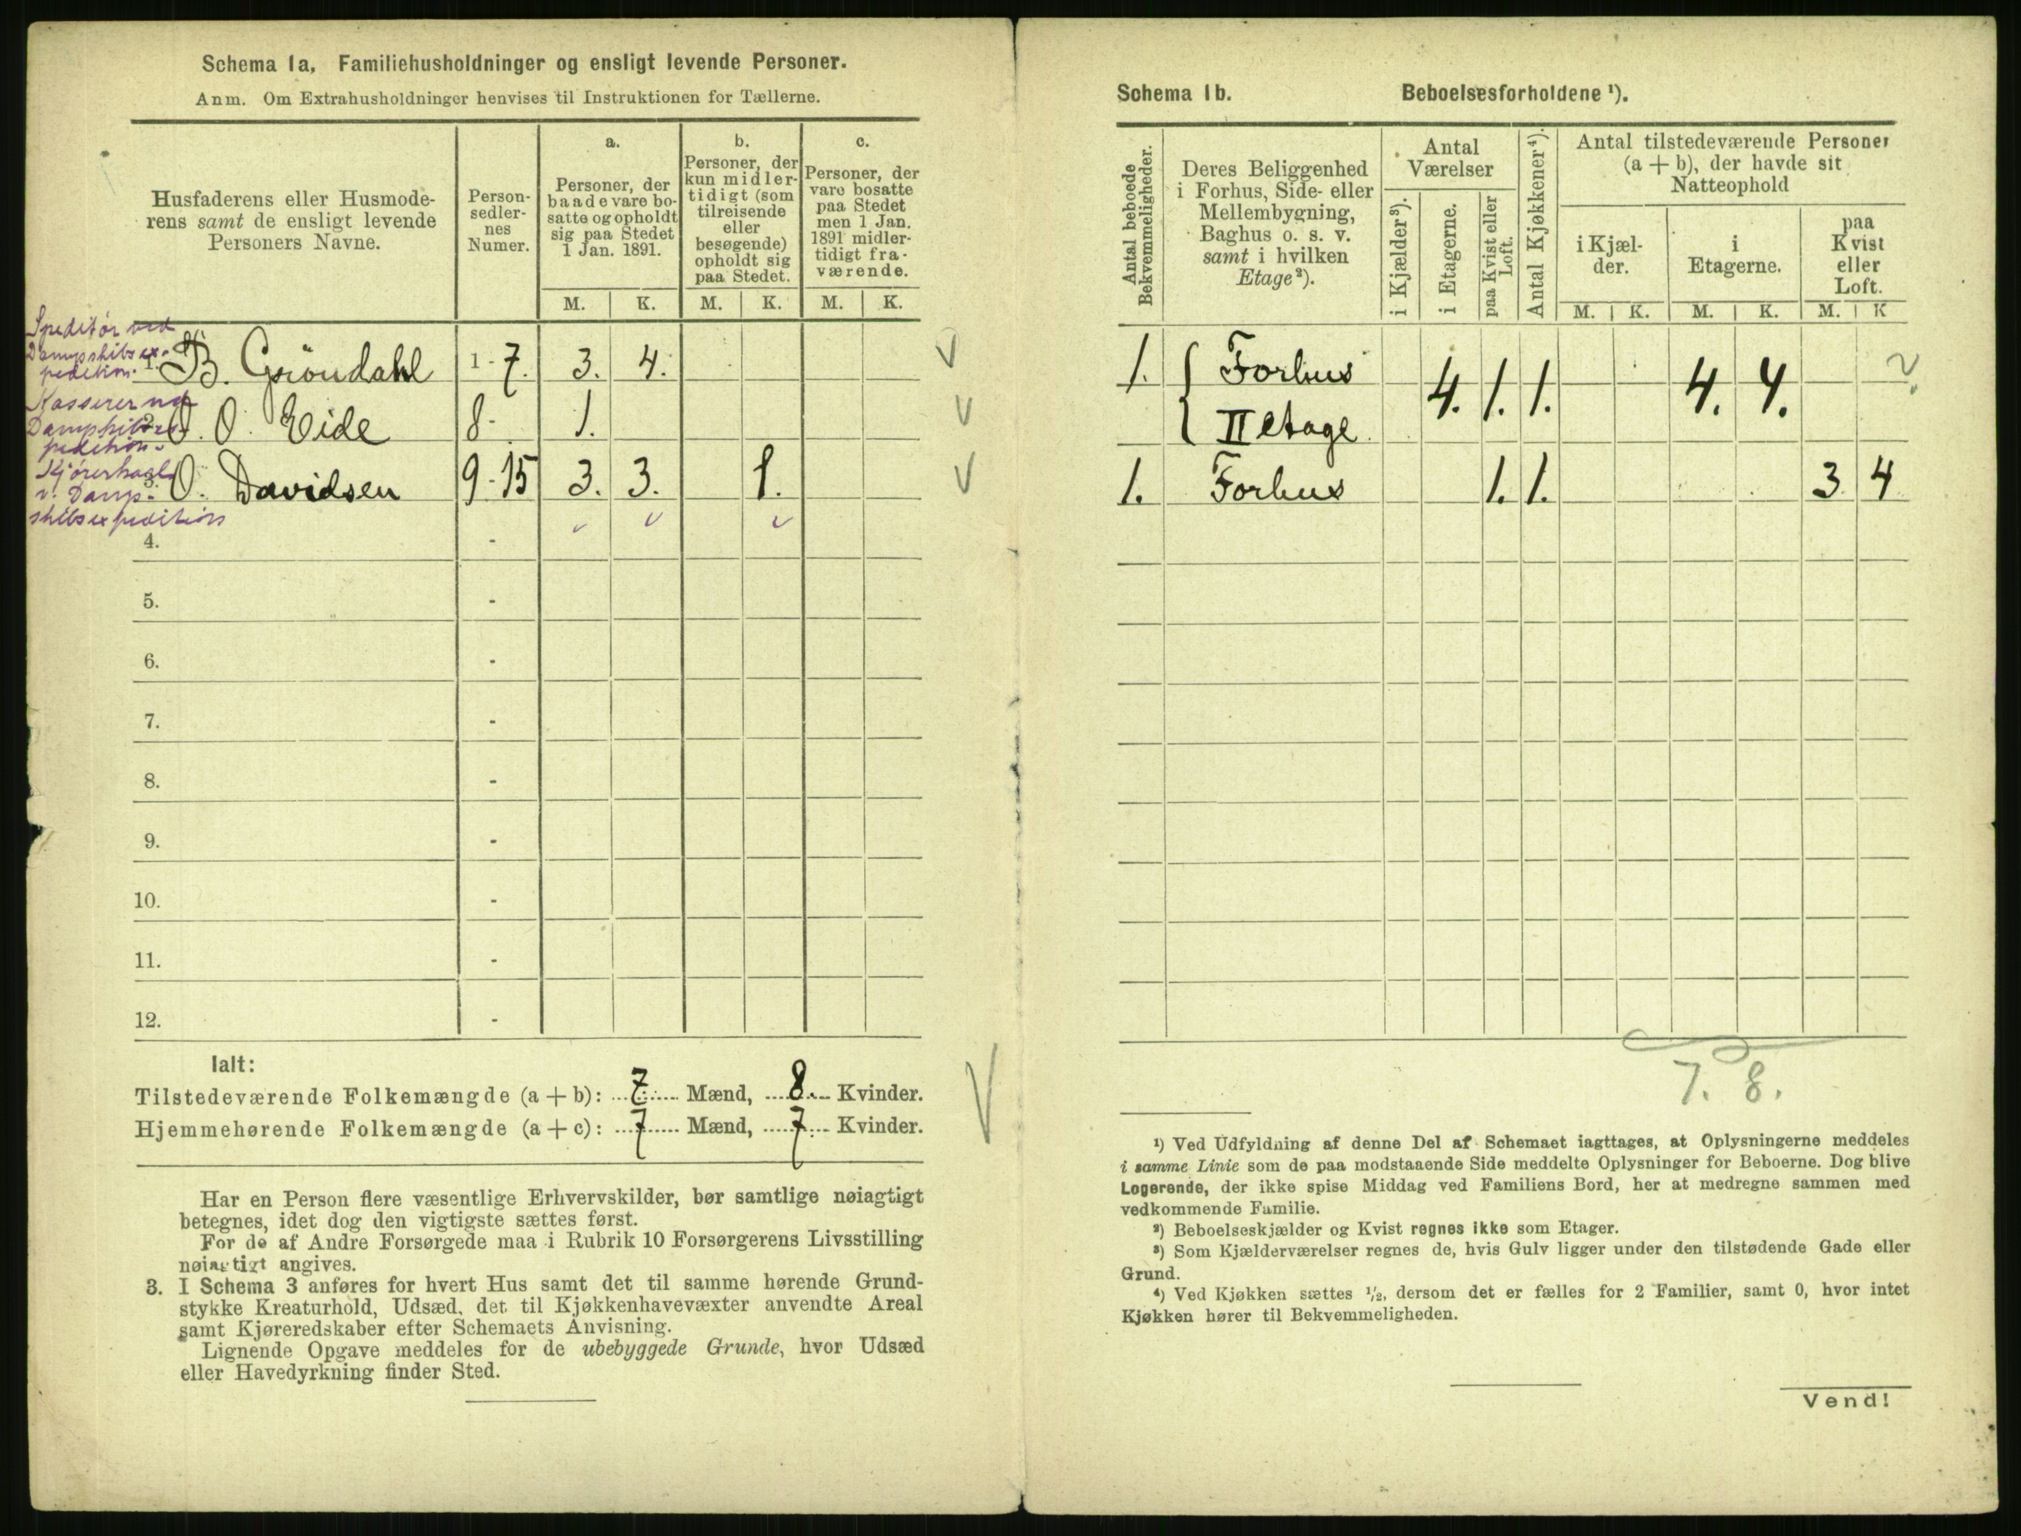 Schema 1a, Familiehusholdninger og ensligt levende Personer.
Anm. Om Extrahusholdninger henvises til Instruktionen for Tællerne.
Husfaderens eller Husmode-
rens samt de ensligt levende
Personers Navne.
Person-
sedler-
nes
Numer.
a.
Personer, der
baade vare bo-
satte og opholdt
sig paa Stedet
1 Jan. 1891.
b.
Personer, der
kun midler-
tidigt (som
tilreisende
eller
besøgende)
opholdt sig
paa Stedet.
c.
Personer, der
vare bosatte
paa Stedet
men 1 Jan.
1891 midler-
tidigt fra-
værende.
M. K. M. K. M. K.
Speditør ved
Dampskibsex-
pedition.
1. B. Gröndahl 1-7. 3. 4.
Kasserer ved
Dampskibsex-
pedition.
2. O. O. Eide 8- 1.
v. Damp-
skibsexpedition
3. O. Davidsen 9-15 3. 3. 1.
4. -
5. -
6. -
7. -
8. -
9. -
10. -
11. -
12. -
Ialt:
Tilstedeværende Folkemængde (a + b): 7 Mænd, 8. Kvinder.
Hjemmehørende Folkemængde (a + c): 7 Mænd, 7 Kvinder.
Har en Person flere væsentlige Erhvervskilder, bør samtlige nøiagtigt
betegnes, idet dog den vigtigste sættes først.
For de af Andre Forsørgede maa i Rubrik 10 Forsørgerens Livsstilling
nøiagtigt angives.
3. I Schema 3 anføres for hvert Hus samt det til samme hørende Grund-
stykke Kreaturhold, Udsæd, det til Kjøkkenhavevæxter anvendte Areal
samt Kjøreredskaber efter Schemaets Anvisning.
Lignende Opgave meddeles for de ubebyggede Grunde, hvor Udsæd
eller Havedyrkning finder Sted.
Schema 1b. Beboelsesforholdene ¹).
Antal beboede
Bekvemmeligheder.
Deres Beliggenhed
i Forhus, Side- eller
Mellembygning,
Baghus o. s. v.
samt i hvilken
Etage²).
Antal
Værelser
i Kjælder³).
i Etagerne.
paa Kvist eller
Loft.
Antal Kjøkkener⁴).
Antal tilstedeværende Personer
(a + b), der havde sit
Natteophold
i Kjæl-
der.
i
Etagerne.
paa
Kvist
eller
Loft.
M. K. M. K. M. K
1. { Forhus 4. 1. 1. 4. 4.
II etage.
1. Forhus 1. 1. 3 4
7. 8.
¹) Ved Udfyldning af denne Del af Schemaet iagttages, at Oplysningerne meddeles
i samme Linie som de paa modstaaende Side meddelte Oplysninger for Beboerne. Dog blive
Logerende, der ikke spise Middag ved Familiens Bord, her at medregne sammen med
vedkommende Familie.
²) Beboelseskjælder og Kvist regnes ikke som Etager.
³) Som Kjælderværelser regnes de, hvis Gulv ligger under den tilstødende Gade eller
Grund.
⁴) Ved Kjøkken sættes ½, dersom det er fælles for 2 Familier, samt 0, hvor intet
Kjøkken hører til Bekvemmeligheden.
Vend!